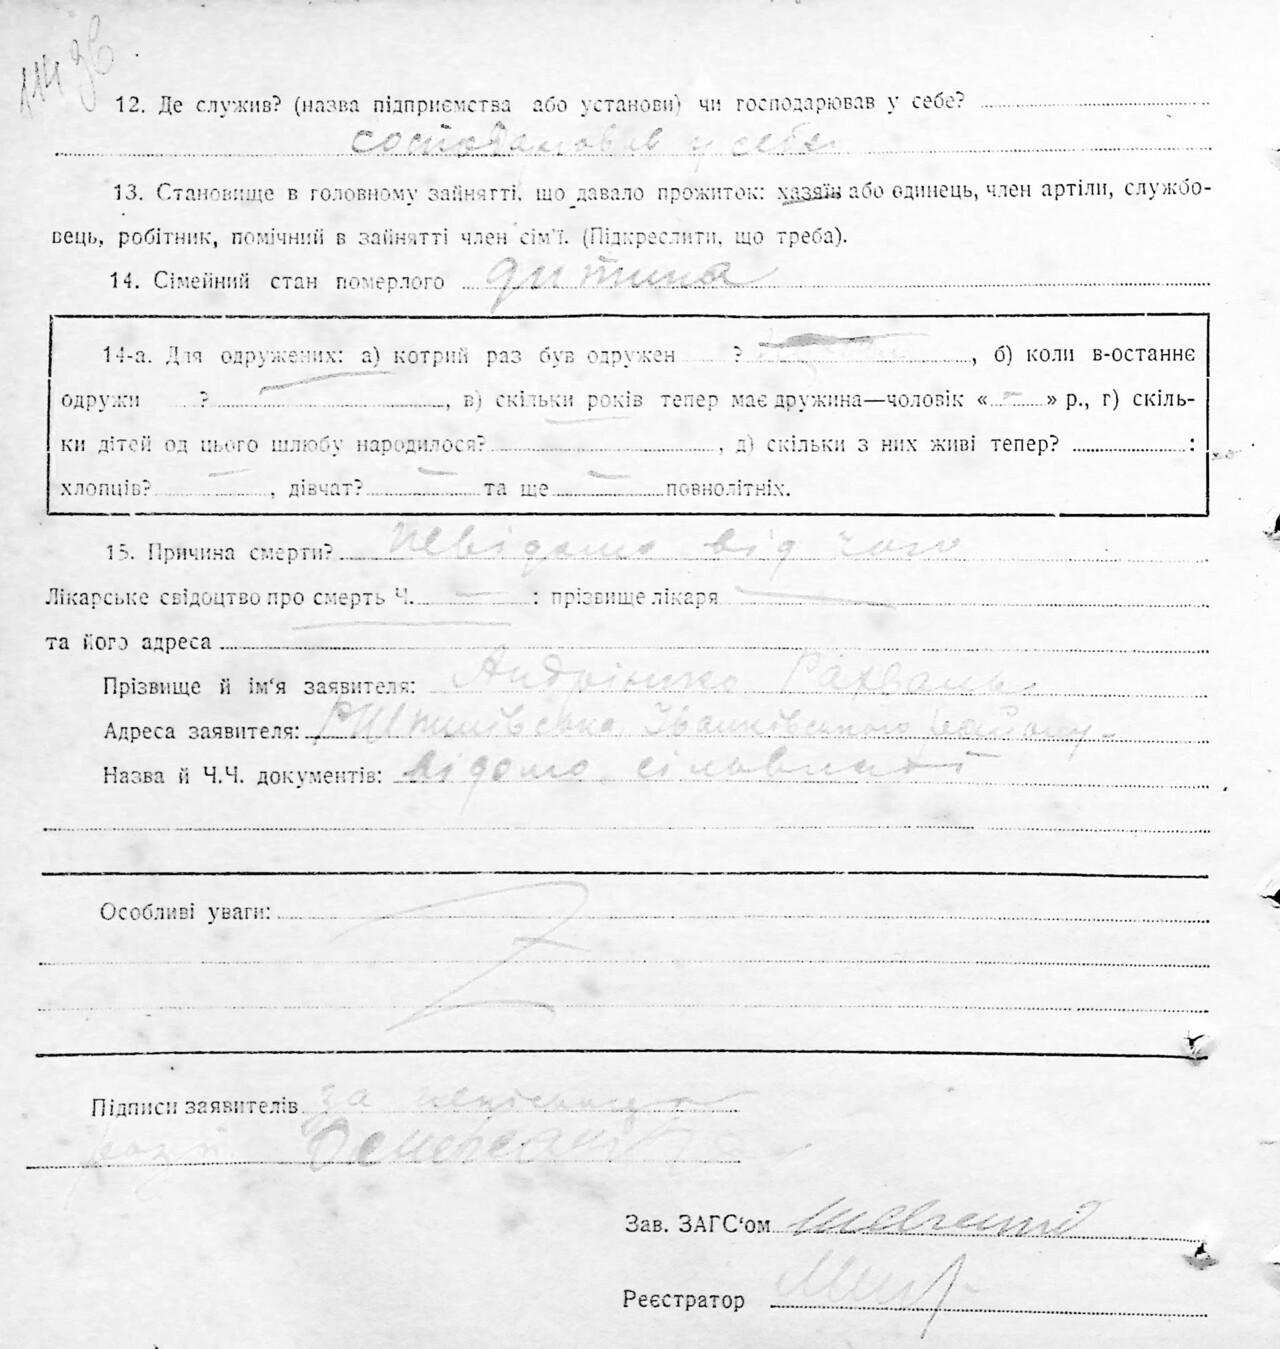 114 зв
12. Де служив? (назва підприємства або установи) чи господарював у себе?
господарював у себе
13. Становище в головному зайнятті, що давало прожиток: хазяїн або одинець, член артіли, службо-
вець, робітник, помічний в зайнятті член сім'ї. (Підкреслити, що треба).
14. Сімейний стан померлого дитина
14-а. Для одружених: а) котрий раз був одружен ? , б) коли в-останнє
одружи ? , в) скільки років тепер має дружина—чоловік « — » р., г) скіль-
ки дітей од цього шлюбу народилося? , д) скільки з них живі тепер? :
хлопців? — , дівчат? — та ще — повнолітніх.
15. Причина смерти? невідомо від чого
Лікарське свідоцтво про смерть Ч. — : прізвище лікаря —
та його адреса
Прізвище й ім‘я заявителя: Андрієнко
Адреса заявителя: Іванківського району
Назва й Ч.Ч. документів: відомо сільвладі
Особливі уваги:
Підписи заявителів за
Зав. ЗАГС‘ом
Реєстратор